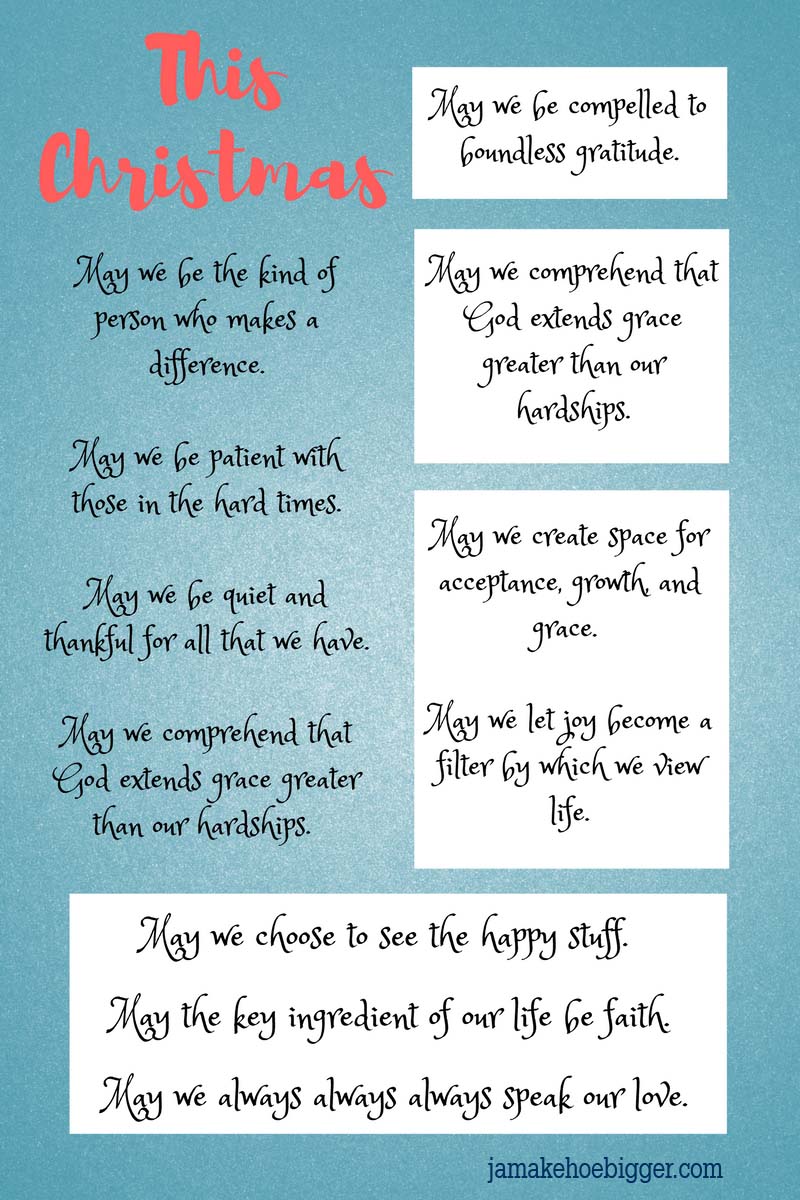 This
Christmas
May we be the kind of
person who makes a
difference.
May we be patient with
those in the hard times.
May we be quiet and
thankful for all that we have.
May we comprehend that
God extends grace greater
than our hardships.
May we be compelled to
boundless gratitude.
May we comprehend that
God extends grace
greater than our
hardships.
May we create space for
acceptance, growth, and
grace.
May we let joy become a
filter by which we view
life.
May we choose to see the happy stuff.
May the key ingredient of our life be faith.
May we always always always speak our love.
jamakehoebigger.com